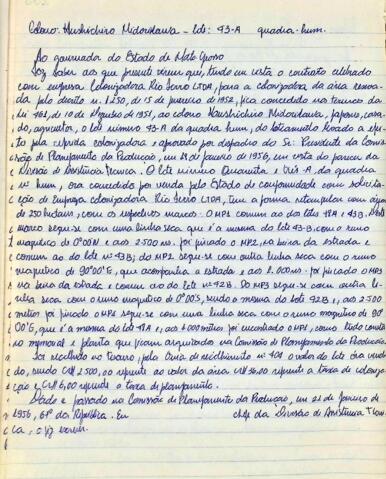 Colono: Hushichiro Midorikawa - lote: 43-A quadra-hum.
Ao governador do Estado de Mato Grosso
Faz saber aos que presente virem que, tendo em vista o contrato celebrado
com empresa Colonizadora Rio Ferro LTDA, para a colonizadora da área reserva-
da pelo decreto n. 1.250, de 15 de fevereiro de 1952, fica concedido nos termos da
Lei 461, de 10 de 1951, ao colono Hushichiro Midorikawa, japones, casa-
do, agricultor, o lote número 43-A da quadra hum, do loteamento
to pela referida colonizadora e aprovado por despacho do Sr. Presidente da Comis-
são de Planejamento da Produção, em de Janeiro de 1956, em vista do parecer da
Divisão de Assistência Técnica. O lote número Quarenta e três-A da quadra
nº hum, ora concedido por venda pelo Estado de conformidade com
ção da Empresa Colonizadora Rio Ferro LTDA, tem a forma retangular com área
de 250 hectares, com os seguintes marcos. O MP1 comum ao do lotes 48A e 43B.
marco segue-se com uma linha seca que é a mesma do lote 43-B, com o rumo
magnético de 0º00'N e aos 2.500 ms. foi fincado o MP2, na beira da estrada e
comum ao do lote 43B; do MP2 segue-se com outra linha seca com o rumo
magnético de 90º00'E, que acompanha a estrada e aos 1.000 ms. foi fincado o MP3
na beira da estrada e comum ao do lote nº 42B. Do MP3 segue-se com outra li-
nha seca com o rumo magnético de 0º00'S, sendo o mesmo do lote 42B e aos 2.500
metros foi fincado o MP4 segue-se com uma linha seca com o rumo magnético de 90º
00'E, que é a mesma do lote 48A e, aos 1.000 metros foi encontrado o MP1, como tudo consta
no memorial e planta que ficam arquivados na Comissão de Planejamento da Produção.
Foi recolhido ao tesouro, pela Guia de recolhimento nº 401 o valor do lote ora vendi-
do, sendo CR$ 2.500,00 referente ao valor da área CR$ referente a taxa de coloniza-
ção e CR$ 6,00 referente a taxa de planejamento.
Dado e passado na Comissão de Planejamento da Produção, em 21 de janeiro de
1956, 67º da República. Eu chefe da Divisão de Assistência
ca, o fiz escrever.